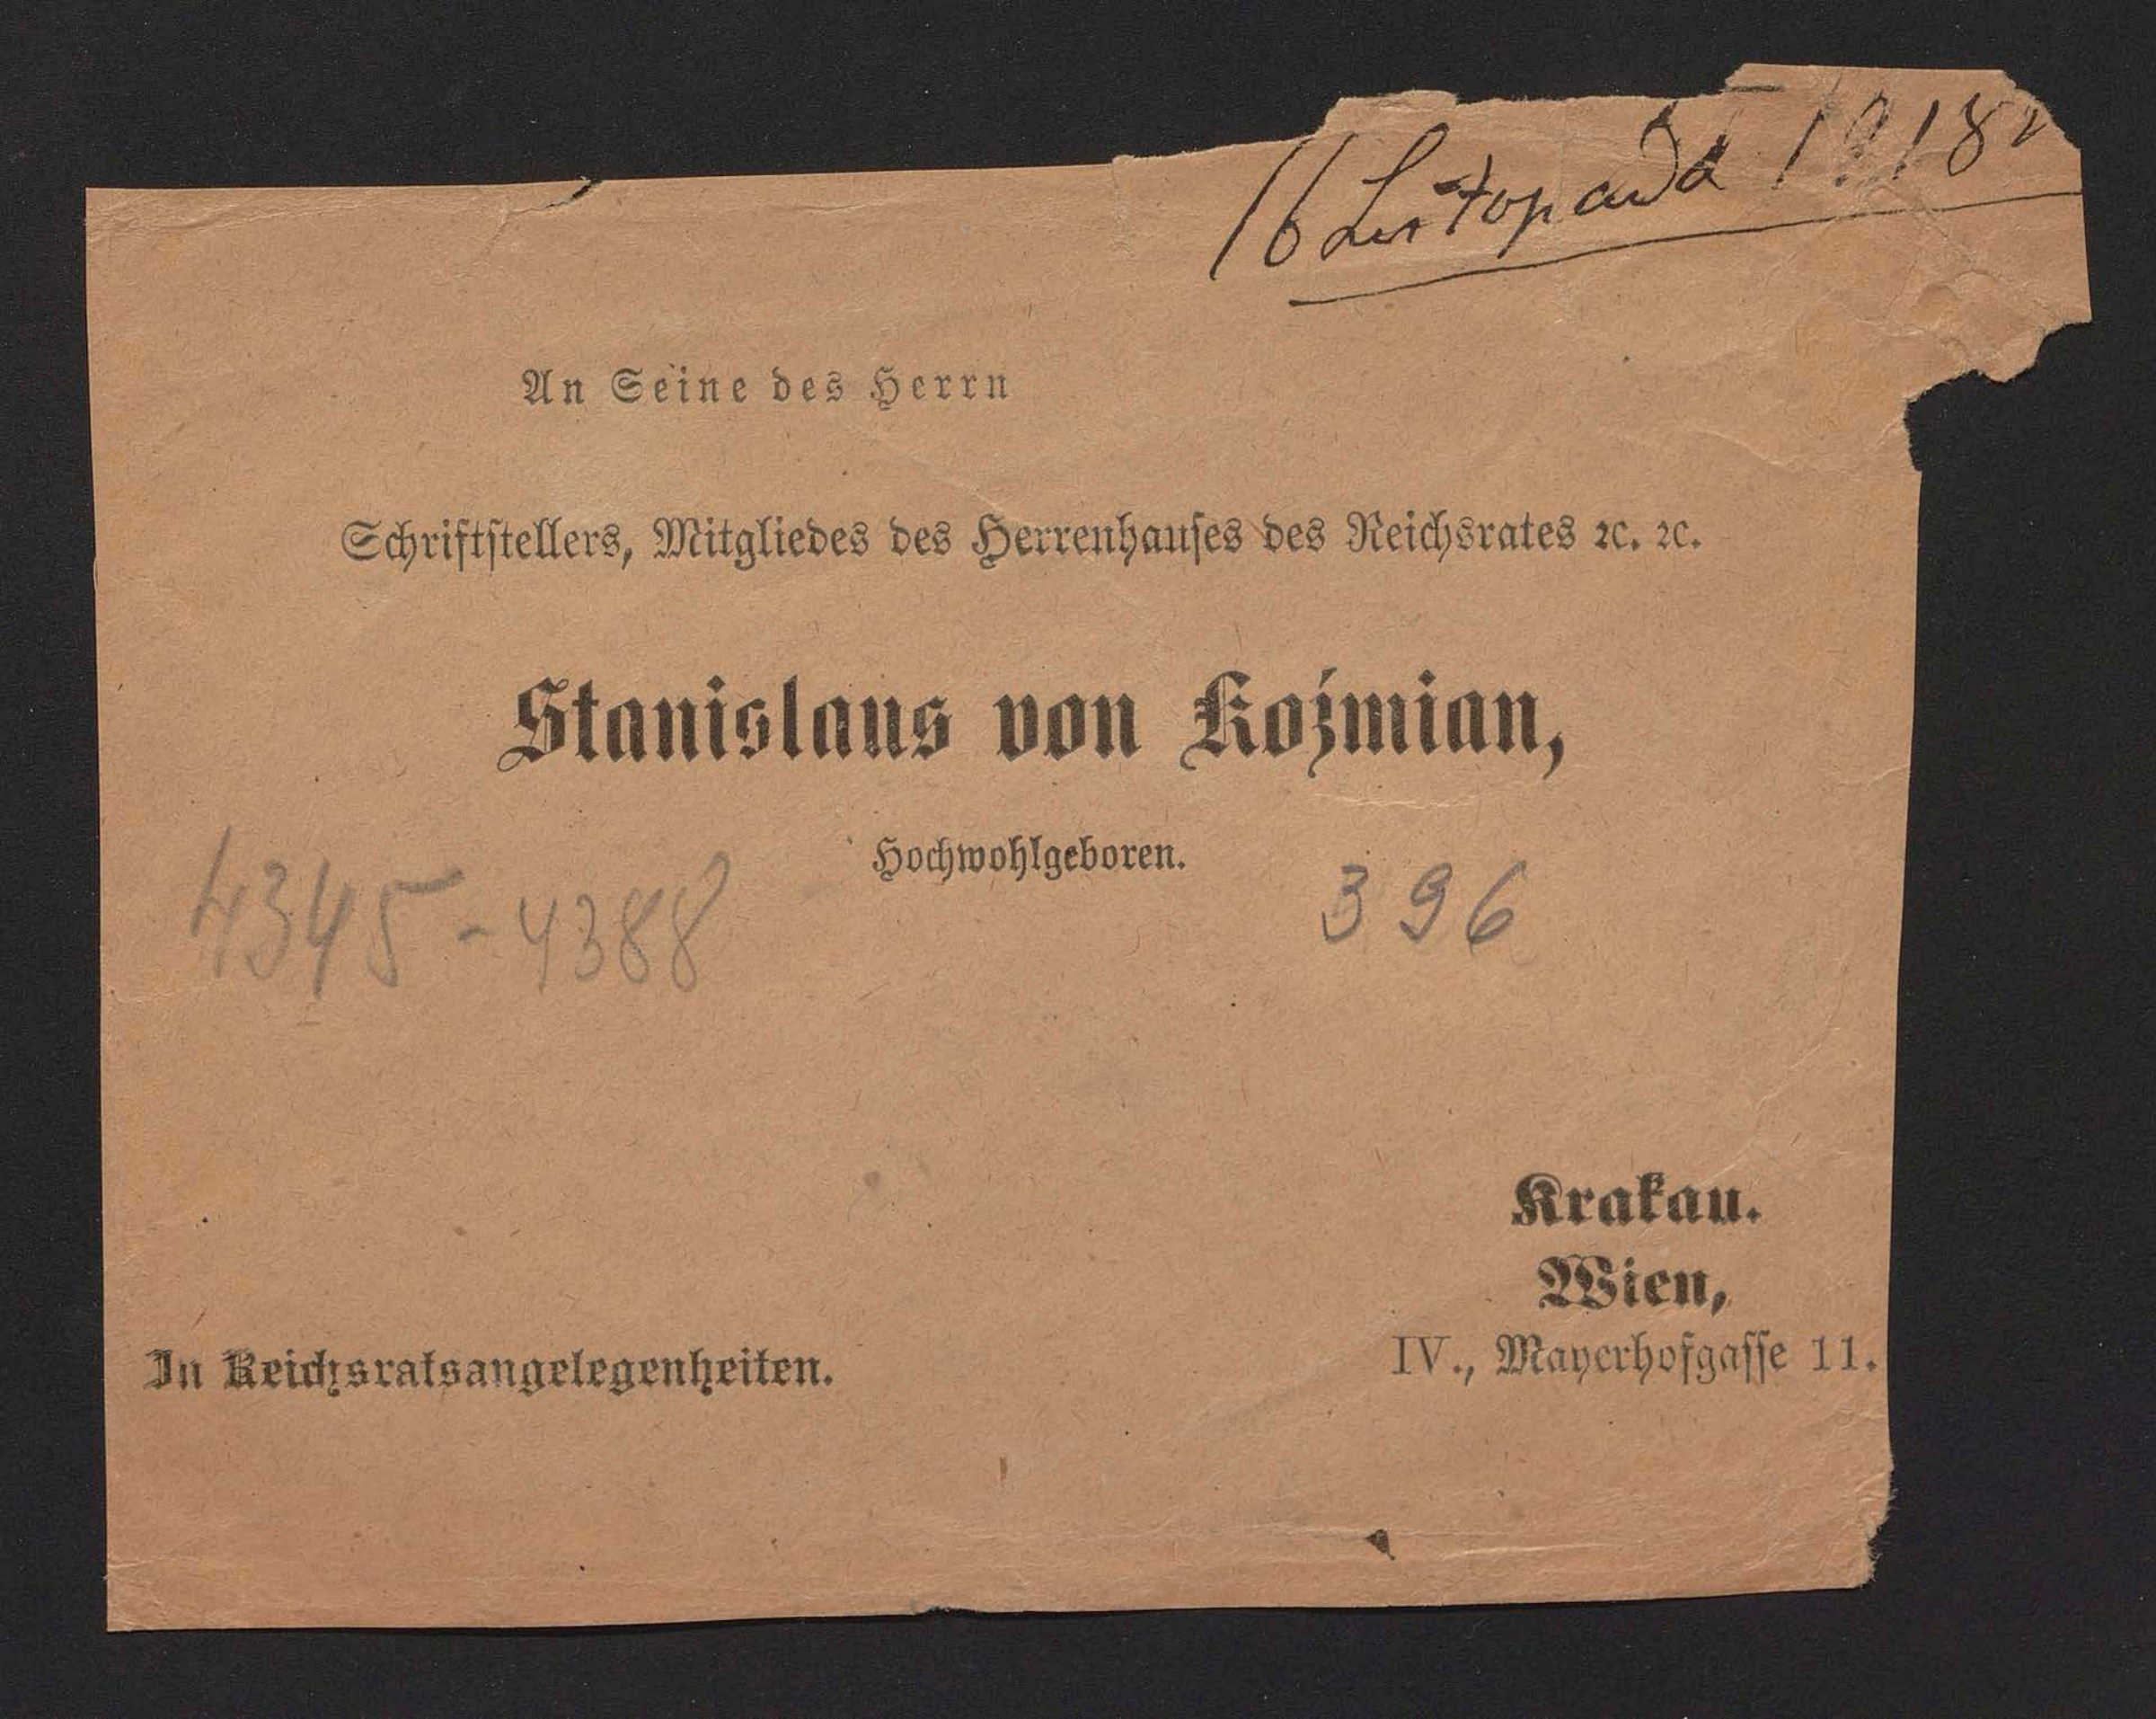 16 Listopada 1918 r
An Seine des Herrn
Schriftstellers, Mitgliedes des Herrenhauses des Reichsrates ꝛc. ꝛc.
Stanislaus von Koźmian,
Hochwohlgeboren.
4345-4388
396
Krakau.
Wien,
IV., Mayerhofgasse 11.
In Reichsratsangelegenheiten.